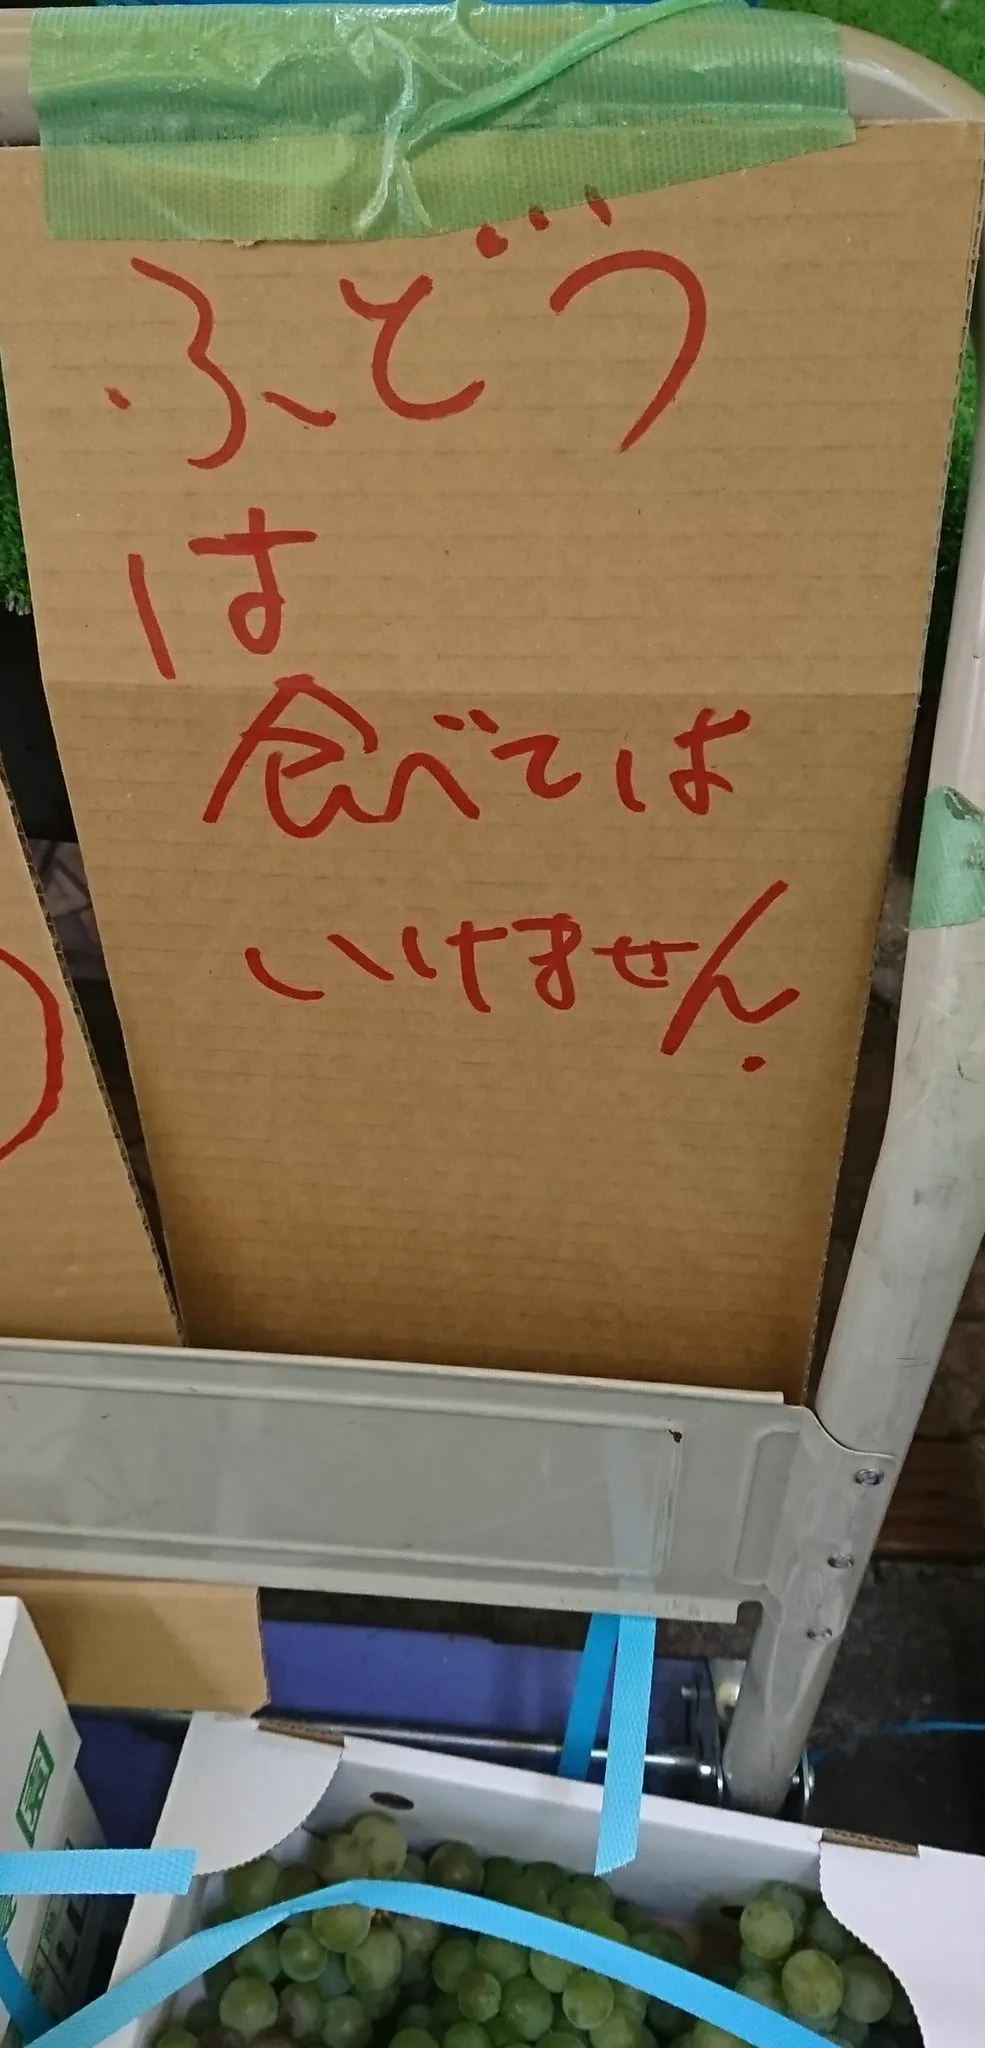 ふどう
は
食べては
いけません.